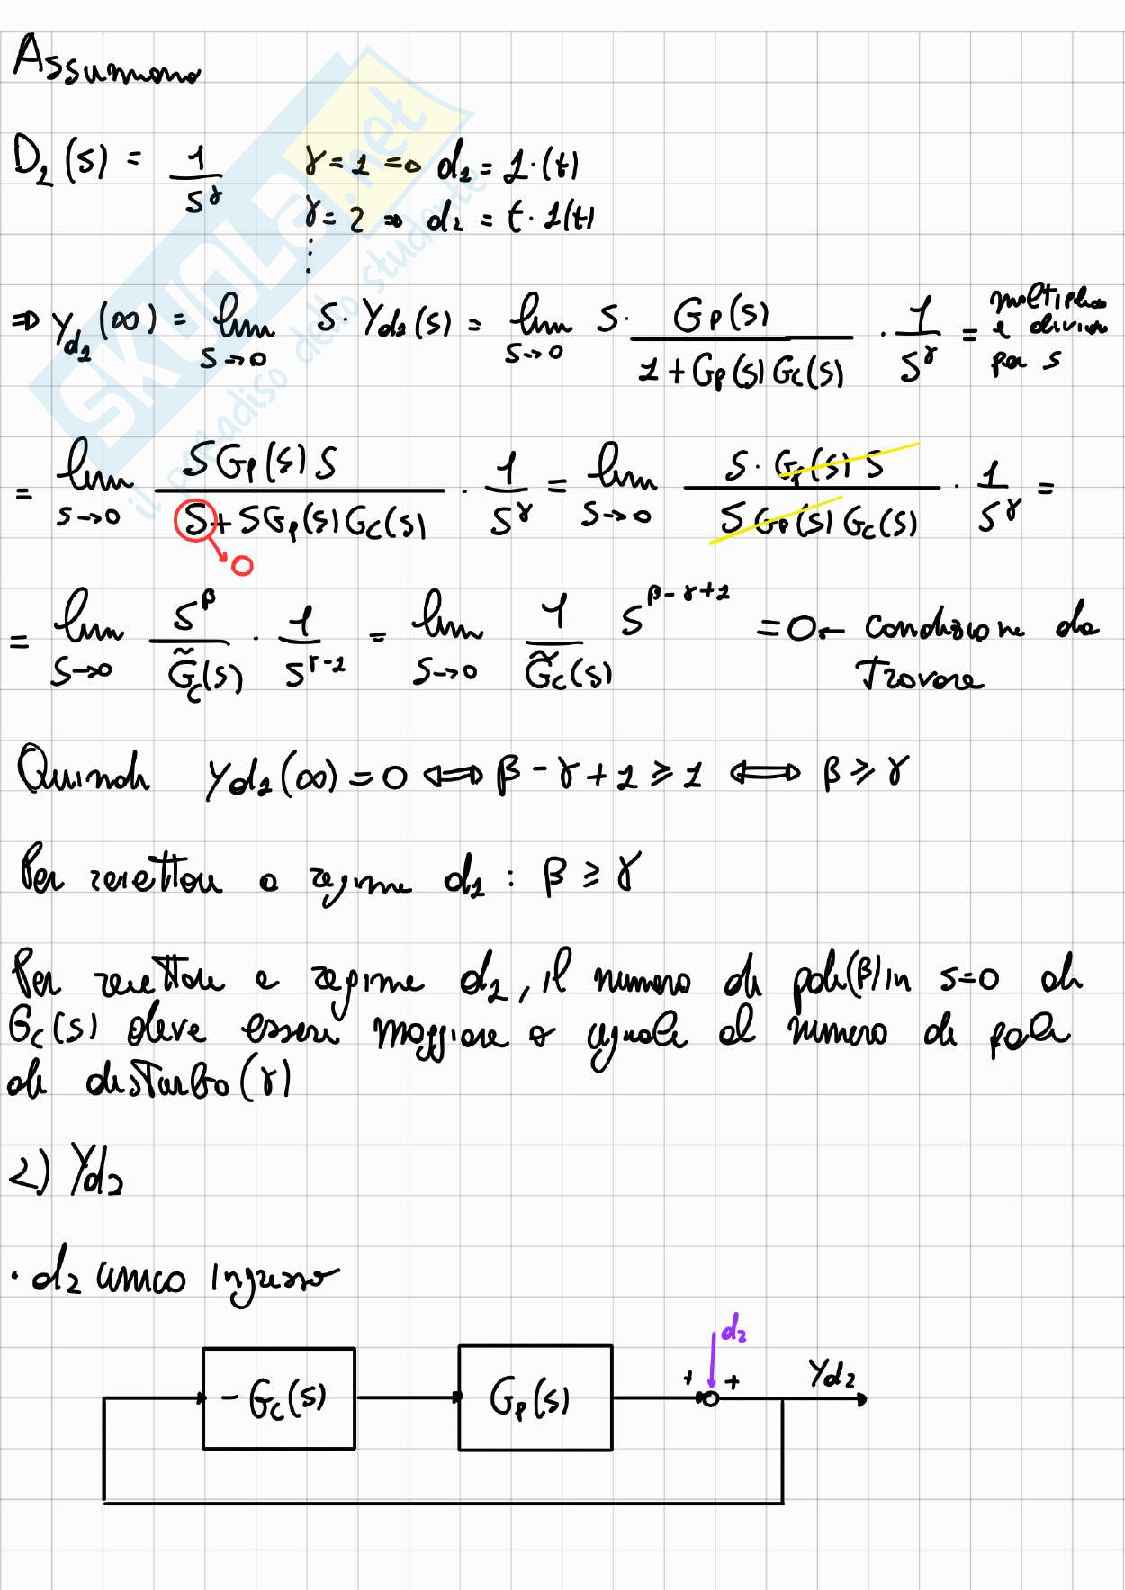 Assumiamo
D₁(s) = 1/s^γ   γ = 1 ⇒ d₁ = 1·(t)
γ = 2 ⇒ d₁ = t·1(t)
⋮
⇒ y_d₁(∞) = lim s→0 s·Y_d₁(s) = lim s→0 s· Gp(s)/(1+Gp(s)Gc(s)) · 1/s^γ = moltiplico e divido per s
= lim s→0 SGp(s)S/(S+SGp(s)Gc(s)) · 1/s^γ = lim s→0 S·Gp(s)S/(SGp(s)Gc(s)) · 1/s^γ =
0
= lim s→0 s^β/G̃c(s) · 1/s^(γ-1) = lim s→0 1/G̃c(s) s^(β-γ+1) = 0 ← condizione da trovare
Quindi y_d₁(∞) = 0 ⇔ β-γ+1 ≥ 1 ⇔ β ≥ γ
Per reiettare a regime d₁ : β ≥ γ
Per reiettare a regime d₁, il numero di poli(β) in s=0 di
Gc(s) deve essere maggiore o uguale al numero di poli
di disturbo (γ)
2) Y_d₂
· d₂ unico ingresso
d₂
+ +
Y_d₂
-Gc(s)
Gp(s)
SKUOLA.net
il paradiso dello studente